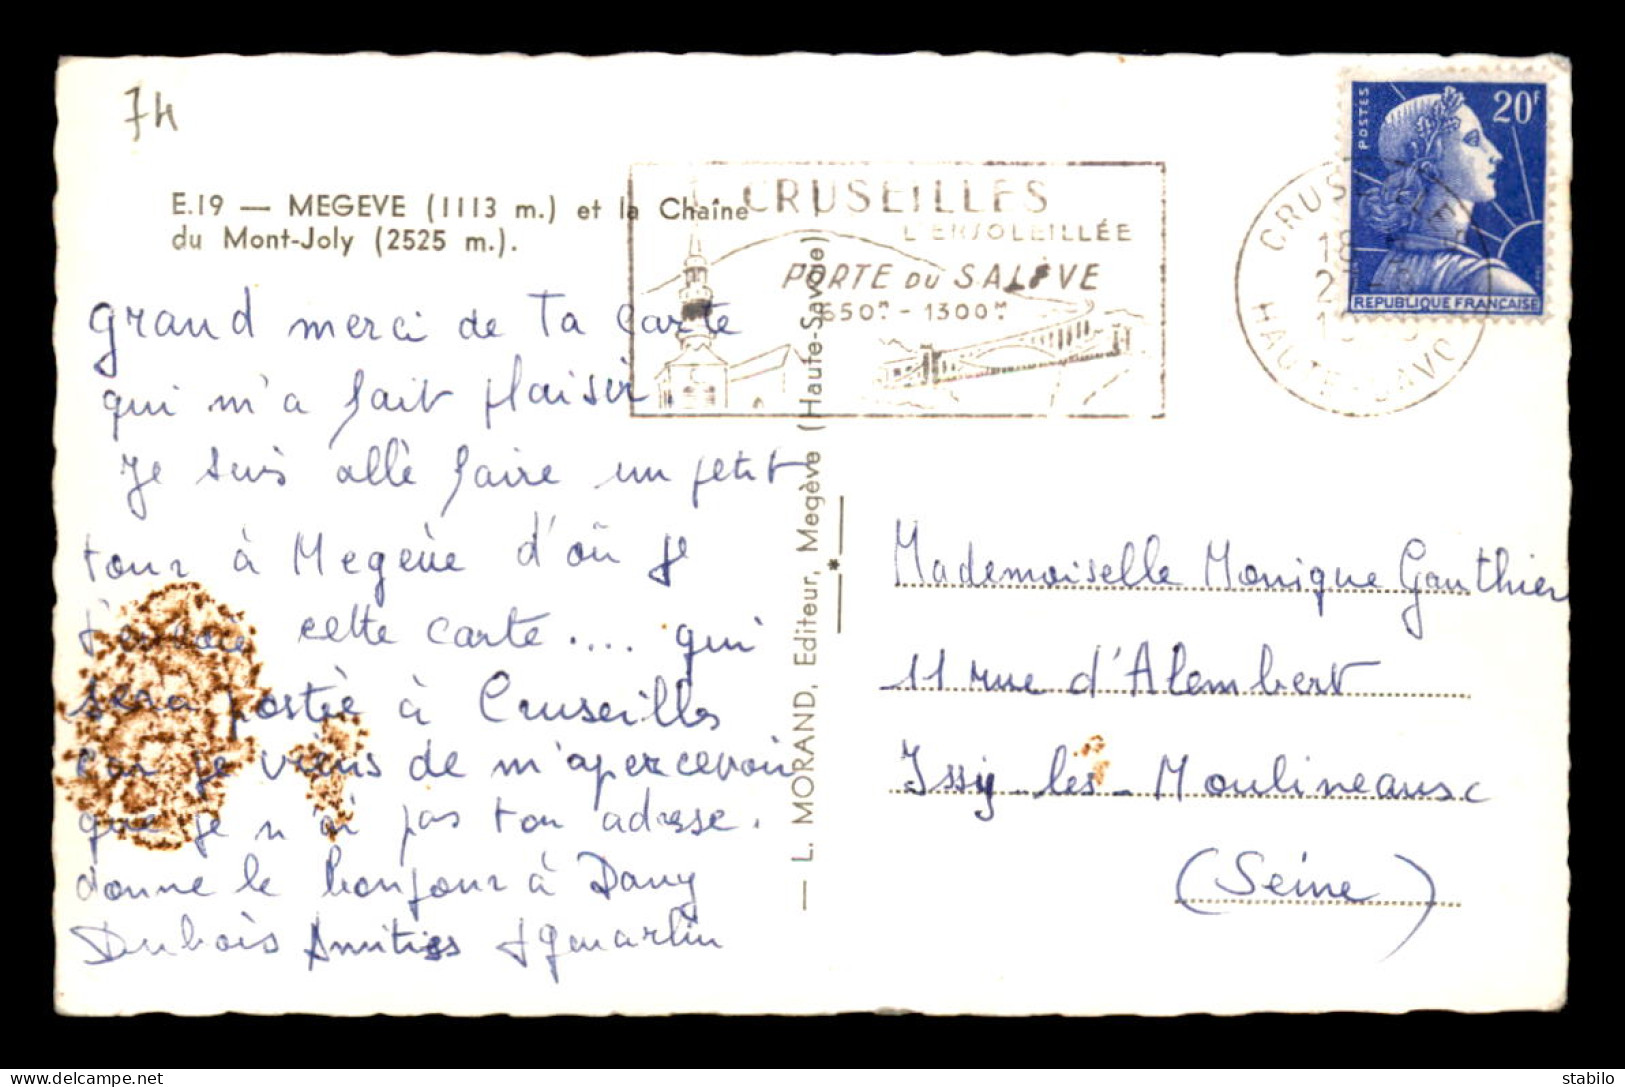 74
E.19 — MEGEVE (1113 m.) et la Chaîne
du Mont-Joly (2525 m.).
CRUSEILLES
L'ENSOLEILLÉE
PORTE DU SALÈVE
650M - 1300M
CRUSEILLES
18
HAUTE-SAVOIE
POSTES
20F
REPUBLIQUE FRANÇAISE
grand merci de ta carte
qui m'a fait plaisir.
Je suis allé faire un petit
tour à Megève d'où je
t'envoie cette carte.... qui
sera postée à Cruseilles
car je viens de m'apercevoir
que je n'ai pas ton adresse.
donne le bonjour à Dany
Dubois Amitiés
— L. MORAND, Editeur, Megève (Haute-Savoie)
Mademoiselle Monique Gauthier
11 rue d'Alembert
Issy-les-Moulineaux
(Seine)
stabilo